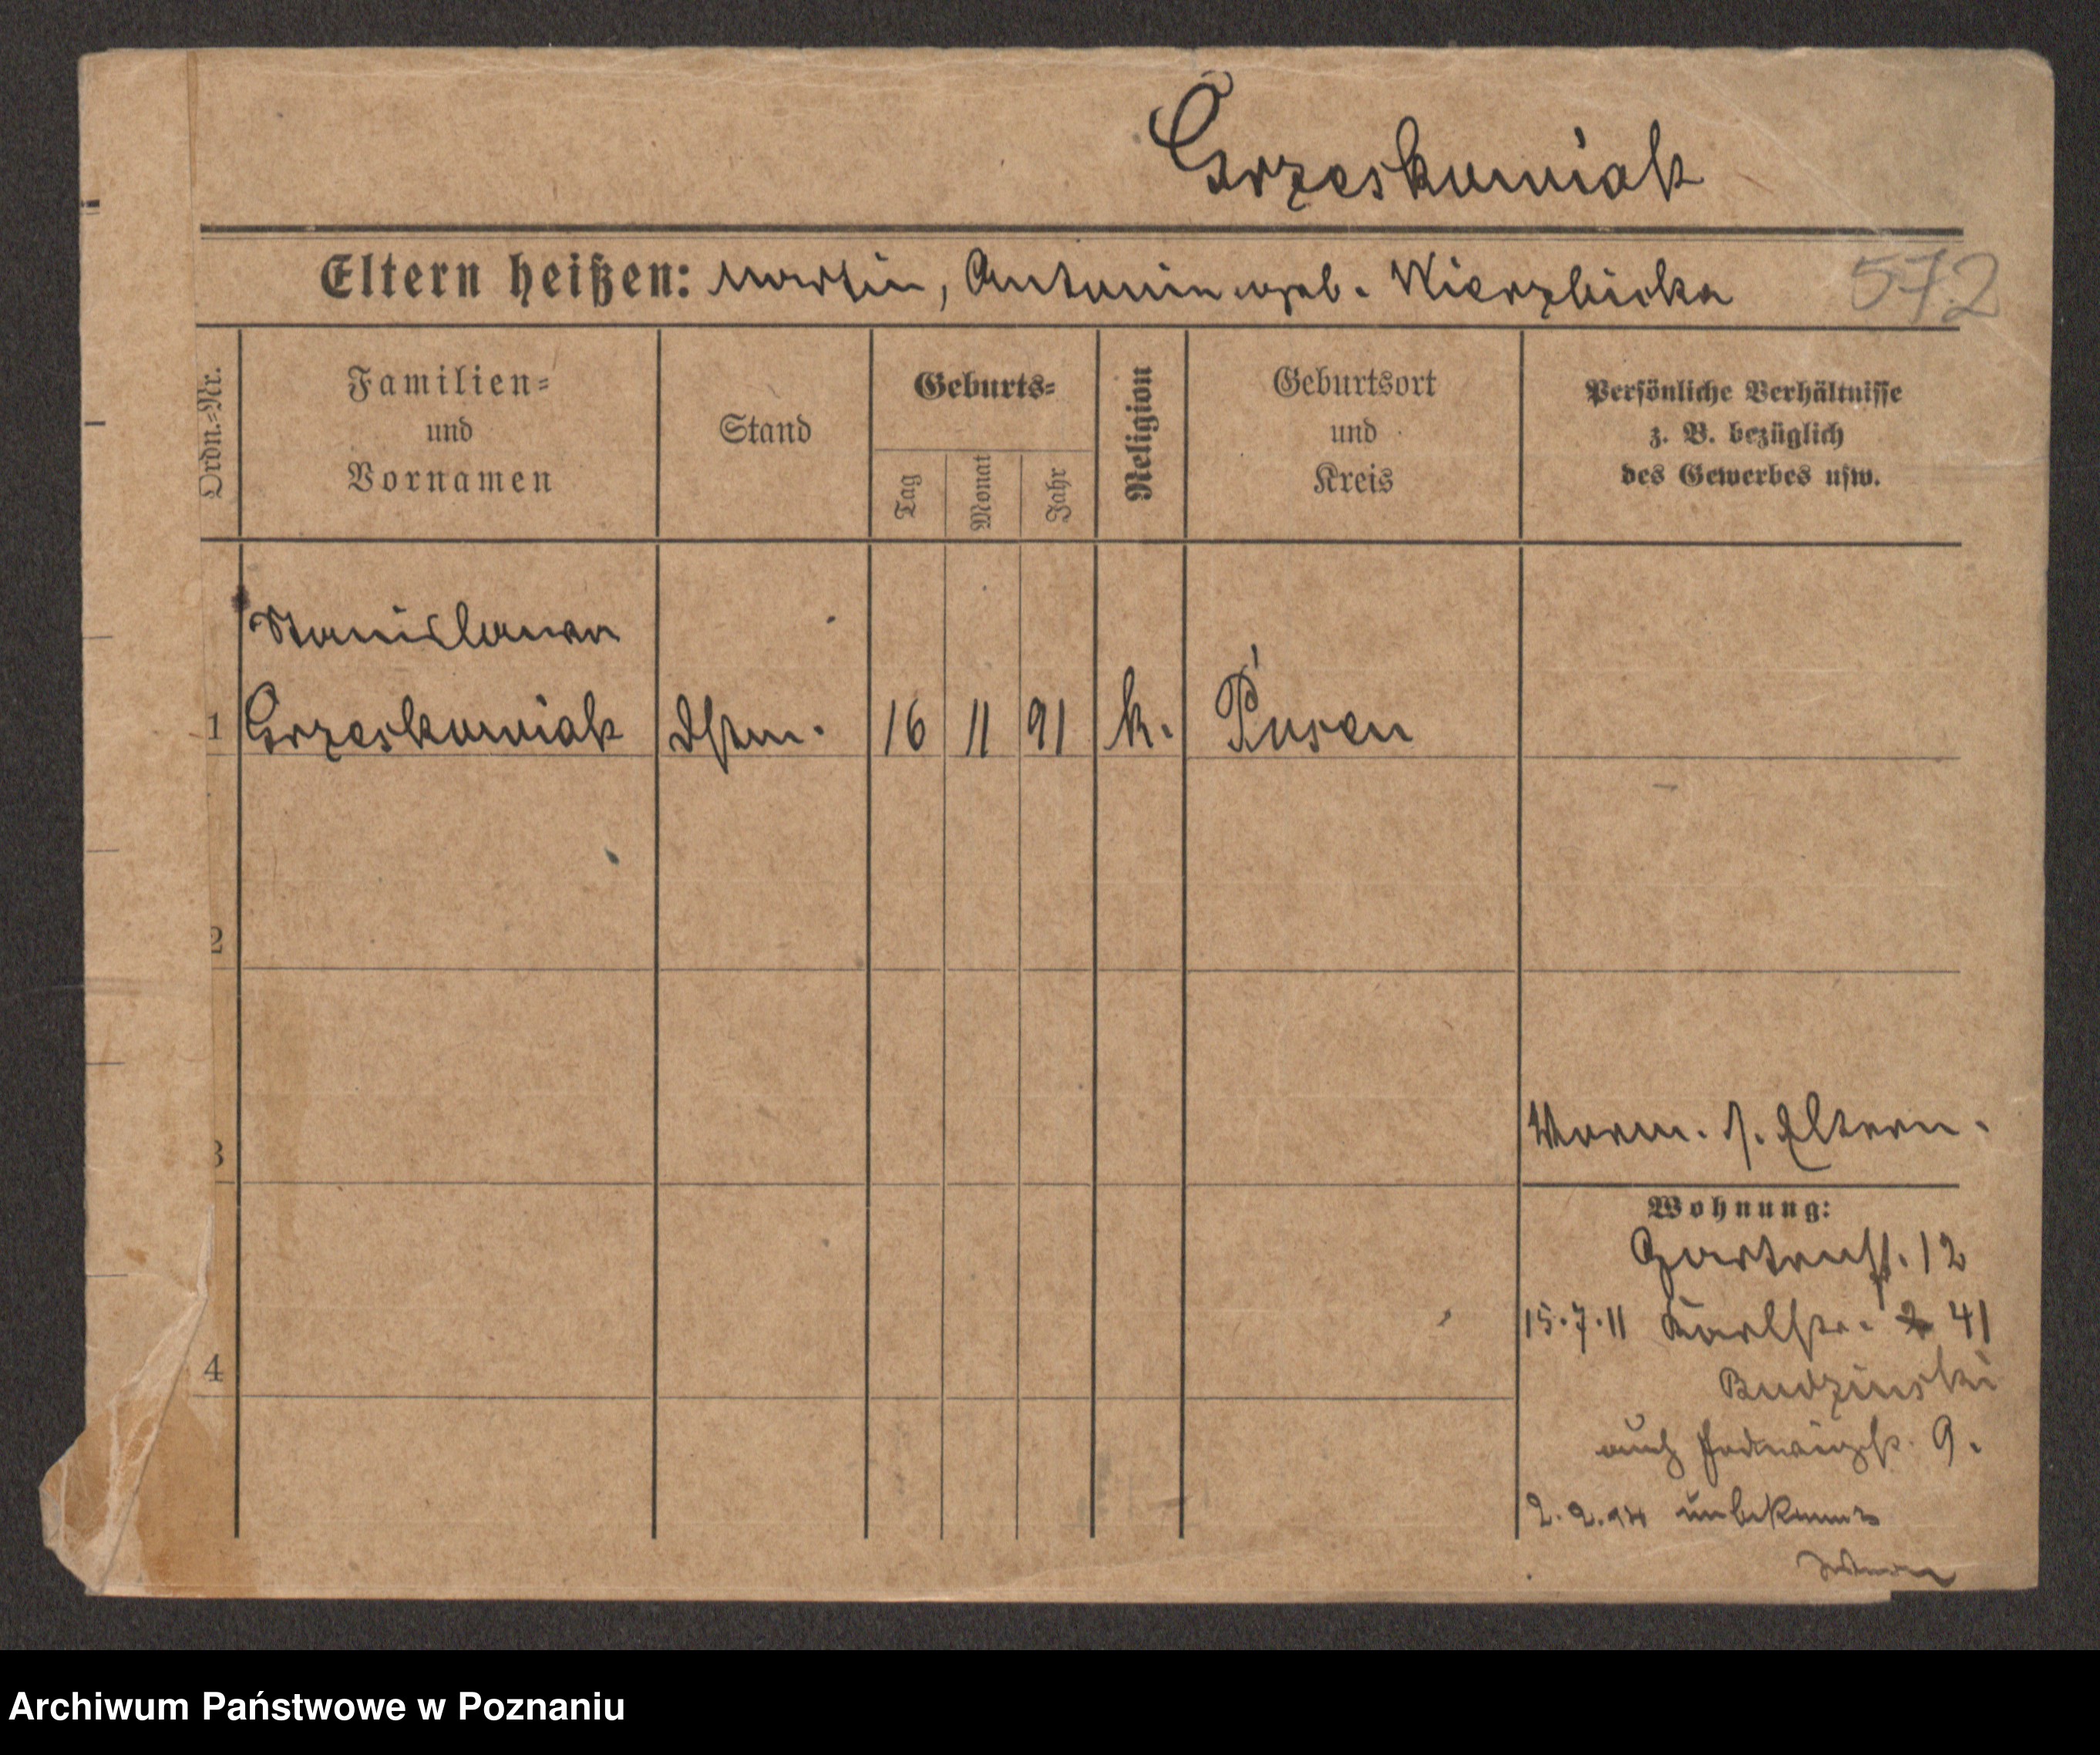 Grzeskowiak
Eltern heißen: Martin, Antonin geb. Wierzbicka
572
Ordn.=Nr.
Familien=
und
Vornamen
Stand
Geburts=
Tag
Monat
Jahr
Religion
Geburtsort
und
Kreis
Persönliche Verhältnisse
z. B. bezüglich
des Gewerbes usw.
Stanislawa
1 Grzeskowiak 16 11 91 k. Posen
2
3
Vorm. s. Eltern.
Wohnung:
Gartenst. 12
15.7.11 Karlstr. 41
4
Budzinski
auch Hedwigst. 9.
unbekannt
Archiwum Państwowe w Poznaniu